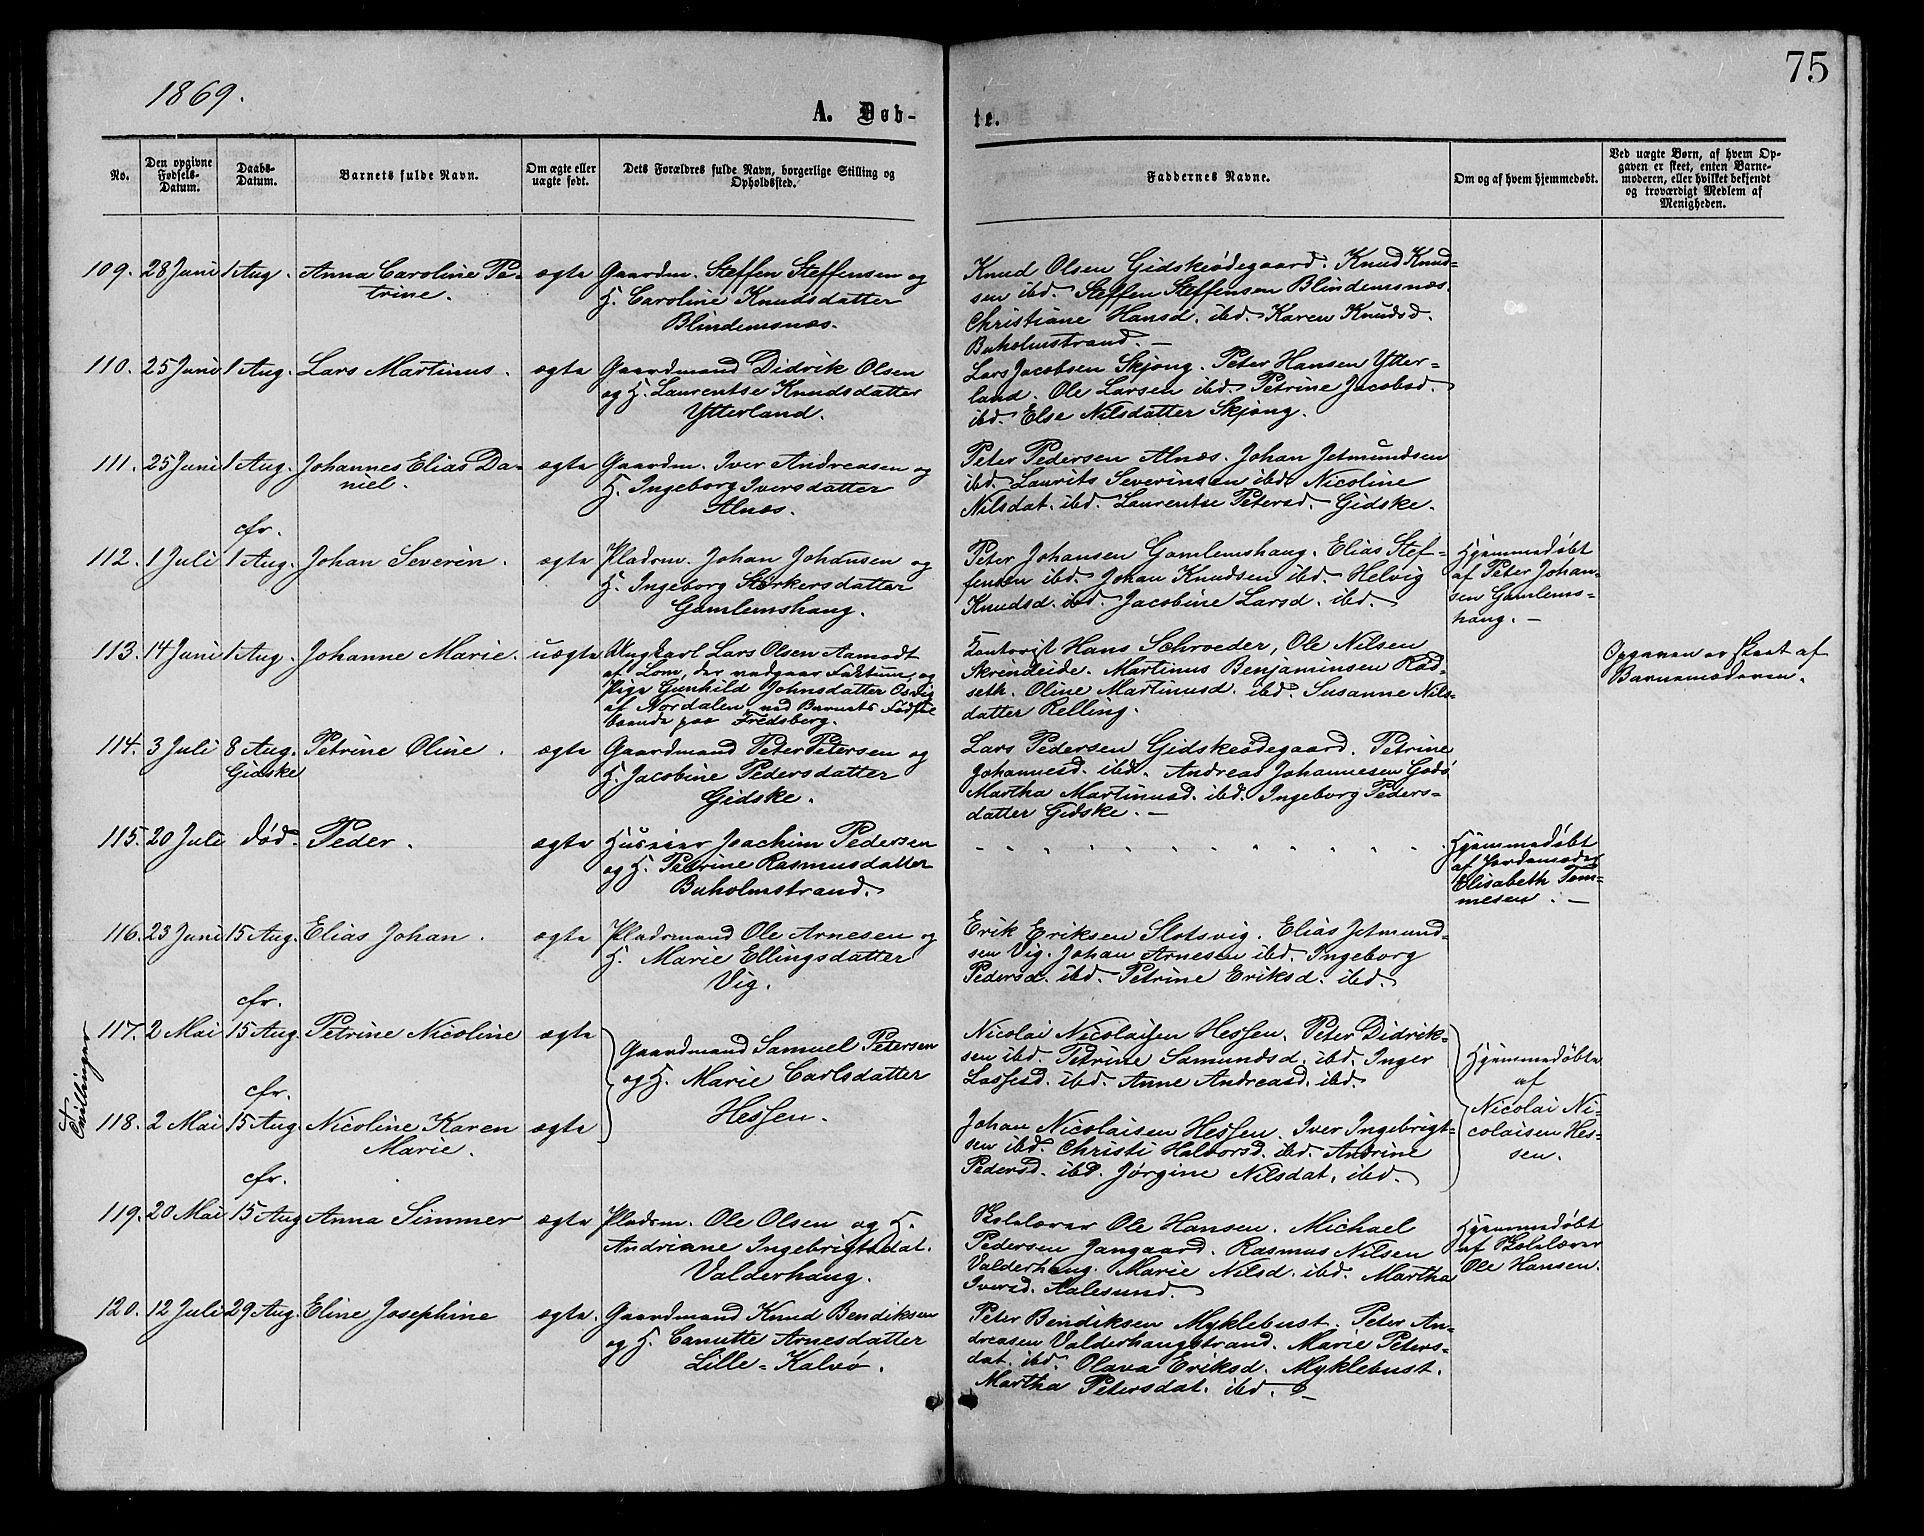 75
1869.
A. Døb-
te.
No.
Den opgivne
Fødsels-
Datum.
Daabs-
Datum.
Barnets fulde Navn.
Om ægte eller
uægte født.
Dets Forældres fulde Navn, borgerlige Stilling og
Opholdssted.
Faddernes Navne.
Om og af hvem hjemmedøbt.
Ved uægte Børn, af hvem Op-
gaven er skeet, enten Barne-
moderen, eller hvilket bekjendt
og troværdigt Medlem af
Menigheden.
109. 28 Juni 1 Aug. Anna Caroline Pe-
trine.
ægte
Gaardm. Steffen Steffensen og
H. Caroline Knudsdatter
Blindemsnæs.
Knud Olsen Gidskeødegaard. Knud Knud-
sen ibd. Steffen Steffensen Blindemsnæs.
Christiane Hansd. ibd. Karen Knudsd.
Buholmstrand. —
110. 25 Juni 1 Aug. Lars Martinus.
ægte
Gaardmand Didrik Olsen
og H. Laurentse Knudsdatter
Ytterland.
Lars Jacobsen Skjong. Peter Hansen Ytter-
land. Ole Larsen ibd. Petrine Jacobsd.
ibd. Else Nilsdatter Skjong.
111. 25 Juni 1 Aug. Johannes Elias Da-
niel.
ægte
Gaardm. Iver Andreasen og
H. Ingeborg Iversdatter
Alnæs.
Peter Pedersen Alnæs. Johan Jetmundsen
ibd. Laurits Severinsen ibd. Nicoline
Nilsdat. ibd. Laurentse Petersd. Gidske.
cfr.
112. 1 Juli 1 Aug. Johan Severin.
ægte
Pladsm. Johan Johansen og
H. Ingeborg Størkersdatter
Gamlemshaug.
Peter Johansen Gamlemshaug. Elias Stef-
fensen ibd. Johan Knudsen ibd. Helvig
Knudsd. ibd. Jacobine Larsd. ibd.
Hjemmedøbt
af Peter Johan-
sen Gamlems-
haug. —
113. 14 Juni 1 Aug. Johanne Marie.
uægte
Ungkarl Lars Olsen Aamodt
af Lom, der vedgaar Faktum, og
Pige Gunhild Johnsdatter Osvig
af Nordalen, ved Barnets Fødsel
boende paa Fredsberg.
Kontorist Hans Schroeder, Ole Nilsen
Skrindeide. Martinus Benjaminsen Rød-
seth. Oline Martinusd. ibd. Susanne Nils-
datter Relling.
Opgaven er skeet af
Barnemoderen.
114. 3 Juli 8 Aug. Petrine Oline.
Gidske
ægte
Gaardmand Peter Petersen og
H. Jacobine Pedersdatter
Gidske.
Lars Pedersen Gidskeødegaard. Petrine
Johannesd. ibd. Andreas Johannesen Godø
Martha Martinusd. ibd. Ingeborg Peders-
datter Gidske. —
115. 20 Juli død. Peder.
ægte
Huseier Joachim Pedersen
og H. Petrine Rasmusdatter
Buholmstrand.
Hjemmedøbt
af Jordemoder
Elisabeth Tom-
mesen. —
116. 23 Juni 15 Aug. Elias Johan.
ægte
Pladsmand Ole Arnesen og
H. Marie Ellingsdatter
Vig.
Erik Eriksen Slotsvig. Elias Jetmund-
sen Vig. Johan Arnesen ibd. Ingeborg
Pedersd. ibd. Petrine Eriksd. ibd.
Tvillinger
cfr.
117. 2 Mai 15 Aug. Petrine Nicoline
ægte
Gaardmand Samuel Petersen
og H. Marie Carlsdatter
Hessen.
Nicolai Nicolaisen Hessen. Peter Didrik-
sen ibd. Petrine Samundsd. ibd. Inger
Lassesd. ibd. Anne Andreasd. ibd.
Hjemmedøbte
af
Nicolai Ni-
colaisen Hes-
sen.
cfr.
118. 2 Mai 15 Aug. Nicoline Karen
Marie.
ægte
Johan Nicolaisen Hessen. Iver Ingebrigt-
sen ibd. Christi Halvorsd. ibd. Andrine
Pedersd. ibd. Jørgine Nilsdat. ibd.
cfr.
119. 20 Mai 15 Aug. Anna Simmer
ægte
Pladsm. Ole Olsen og H.
Andriane Ingebrigtsdat.
Valderhaug.
Skolelærer Ole Hansen. Michael
Pedersen Jangaard. Rasmus Nilsen
Valderhaug. Marie Nilsd. ibd. Martha
Iversd. Aalesund.
Hjemmedøbt
af Skolelærer
Ole Hansen.
120. 12 Juli 29 Aug. Eline Josephine
ægte.
Gaardmand Knud Bendiksen
og H. Canutte Arnesdatter
Lille-Kalvø.
Peter Bendiksen Myklebust. Peter An-
dreasen Valderhaugstrand. Marie Peters-
dat. ibd. Olava Eriksd. Myklebust.
Martha Petersdat. ibd. —